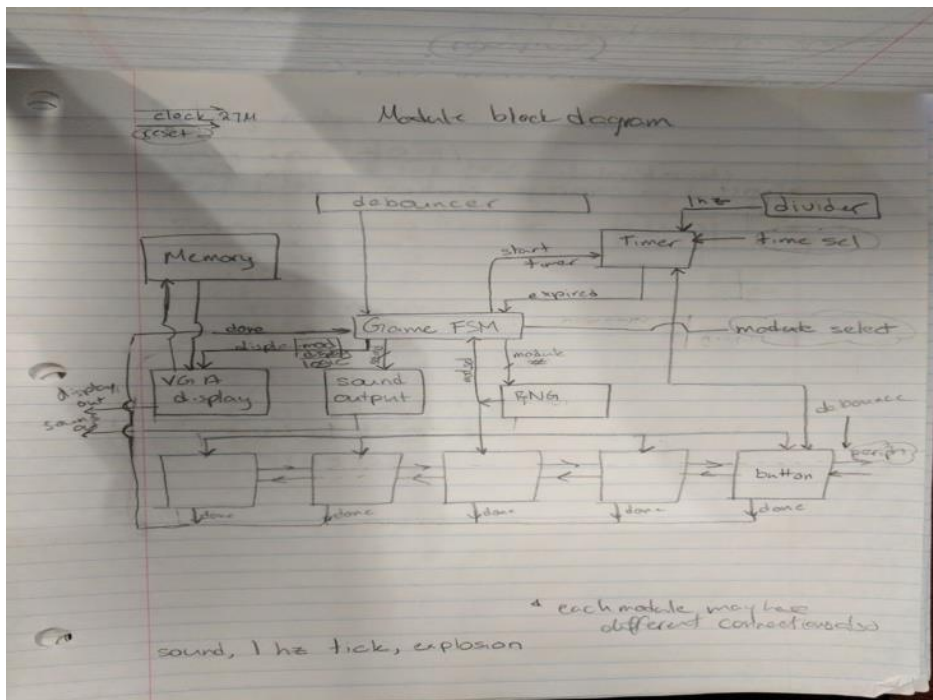 clock 27M
reset
Module block diagram
debouncer
1hz
divider
Memory
Timer
time sel
start
timer
expired
done
Game FSM
module select
mod
module
VGA
display
sound
output
RNG
display
out
debounce
periph
button
done
done
done
done
done
* each module may have
different connections also
sound, 1 hz tick, explosion